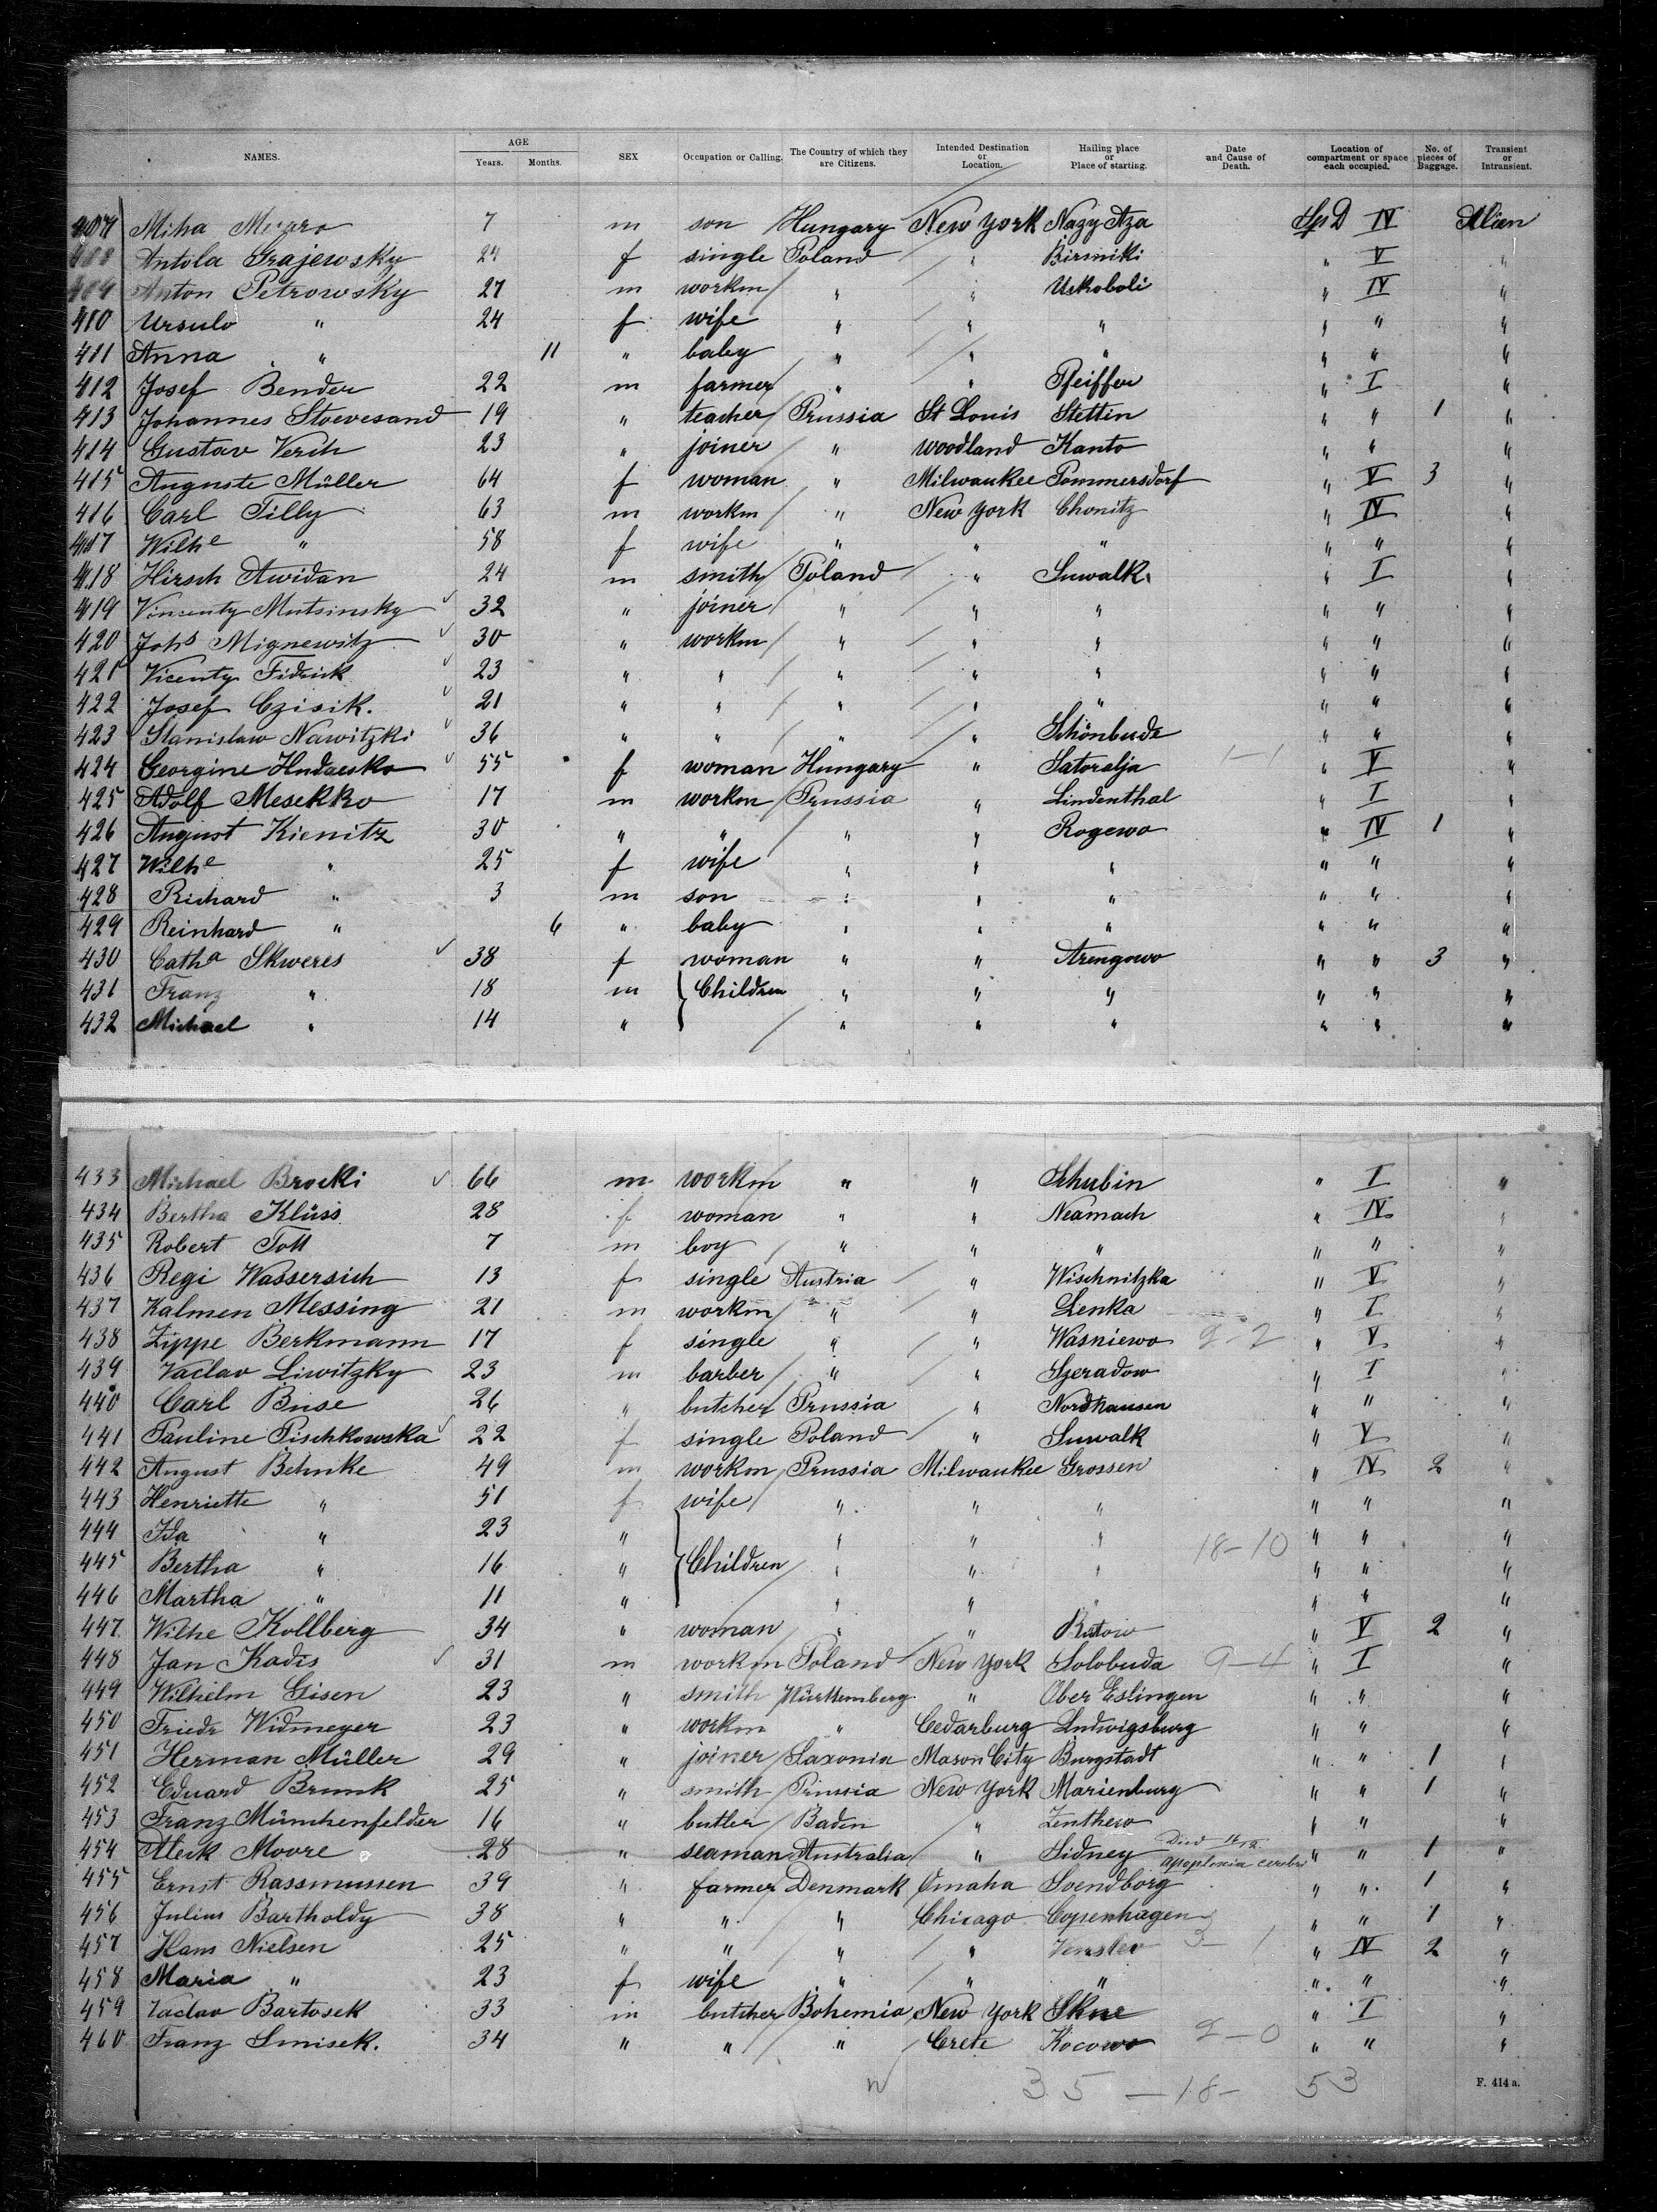 NAMES. AGE Years. Months. SEX Occupation or Calling. The Country of which they are Citizens. Intended Destination or Location. Hailing place or Place of starting. Date and Cause of Death. Location of compartment or space each occupied. No. of pieces of Baggage. Transient or Intransient.
407 Miha 7 m son Hungary New York Nagy Aza IV Alien
408 Antola Grajewsky 24 f single Poland " Birsniki " V "
409 Anton Petrowsky 27 m workm " " Uskoboli " IV "
410 Ursulo " 24 f wife " " " " " "
411 Anna " 11 " baby " " " " " "
412 Josef Bender 22 m farmer " " Pfeiffer " I "
413 Johannes Stoevesand 19 " teacher Prussia St Louis Stettin " " 1 "
414 Gustav Verch 23 " joiner " Woodland Kanto " " "
415 Auguste Müller 64 f woman " Milwaukee Pommersdorf " V 3 "
416 Carl Tilly 63 m workm " New York Chonitz " IV "
417 Wilhe " 58 f wife " " " " " "
418 Hirsch Awidan 24 m smith Poland " Suwalk " I "
419 Vincenty Mutsinsky 32 " joiner " " " " " "
420 Johs Mignewitz 30 " workm " " " " " "
421 Vicenty Fidrick 23 " " " " " " " "
422 Josef Czisik. 21 " " " " " " " "
423 Stanislaw Nawitzki 36 " " " " Schönbude " " "
424 Georgine Hudaesko 55 f woman Hungary " Satoralja 1-1 " V "
425 Adolf Mesekko 17 m workm Prussia " Lindenthal " I "
426 August Kienitz 30 " " " " Rogewo " IV 1 "
427 Wilhe " 25 f wife " " " " " "
428 Richard " 3 m son " " " " " "
429 Reinhard " 6 " baby " " " " " "
430 Catha Skweres 38 f woman " " Arengowo " " 3 "
431 Franz " 18 m Children " " " " " "
432 Michael " 14 " " " " " " "
433 Michael Brocki 66 m workm " " Schubin " I "
434 Bertha Klüss 28 f woman " " Neamach " IV "
435 Robert Toll 7 m boy " " " " " "
436 Regi Wassersich 13 f single Austria " Wischnitzka " V "
437 Kalmen Messing 21 m workm " " Lenka " I "
438 Zippe Berkmann 17 f single " " Wasniewo 2-2 " V "
439 Vaclav Liwitzky 23 m barber " " Szeradow " I "
440 Carl Buse 26 " butcher Prussia " Nordhausen " " "
441 Pauline Pischkowska 22 f single Poland " Suwalk " V "
442 August Behnke 49 m workm Prussia Milwaukee Grossen " IV 2 "
443 Henriette " 51 f wife " " " " " "
444 Ida " 23 " " " " " " "
445 Bertha " 16 " Children " " " 18-10 " " "
446 Martha " 11 " " " " " " "
447 Wilhe Kollberg 34 " woman " " " V 2 "
448 Jan Kadis 31 m workm Poland New York Solobuda 9-4 " I "
449 Wilhelm Gisen 23 " smith Württemberg " Ober Eslingen " " "
450 Friedr Widmeyer 23 " workm " Cedarburg Ludwigsburg " " "
451 Herman Müller 29 " joiner Saxonia Mason City Burgstadt " " 1 "
452 Eduard Brunk 25 " smith Prussia New York Marienburg " " 1 "
453 Franz Münchenfelder 16 " butler Baden " Zenthern " " "
454 Aleck Moore 28 " seaman Australia " Sidney Died " " 1 "
455 Ernst Rassmussen 39 " farmer Denmark Omaha Svendborg " " 1 "
456 Julius Bartholdy 38 " " " Chicago Copenhagen " " 1 "
457 Hans Nielsen 25 " " " " 3-1 " IV 2 "
458 Maria " 23 f wife " " " " " "
459 Vaclav Bartosek 33 m butcher Bohemia New York " I "
460 Franz Smisek. 34 " " " Crete Kocowo 2-0 " " "
35 -18- 53 F. 414 a.